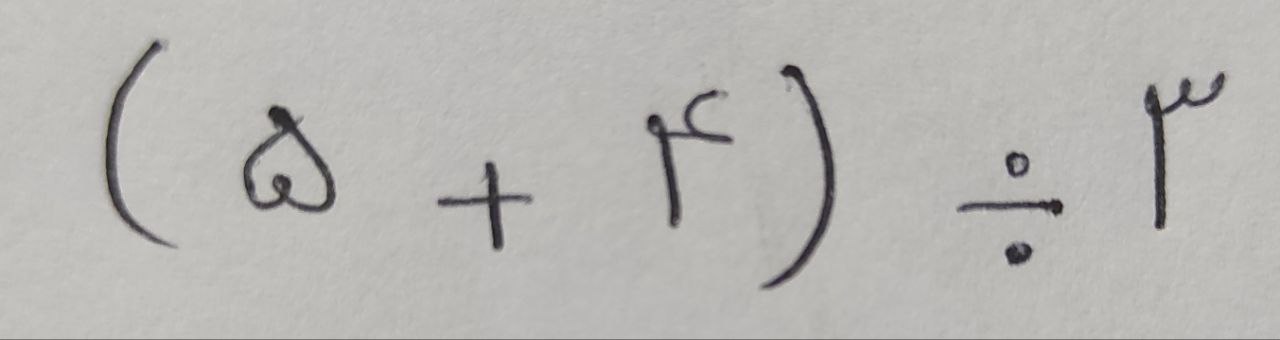 (۵ + ۴) ÷ ۳